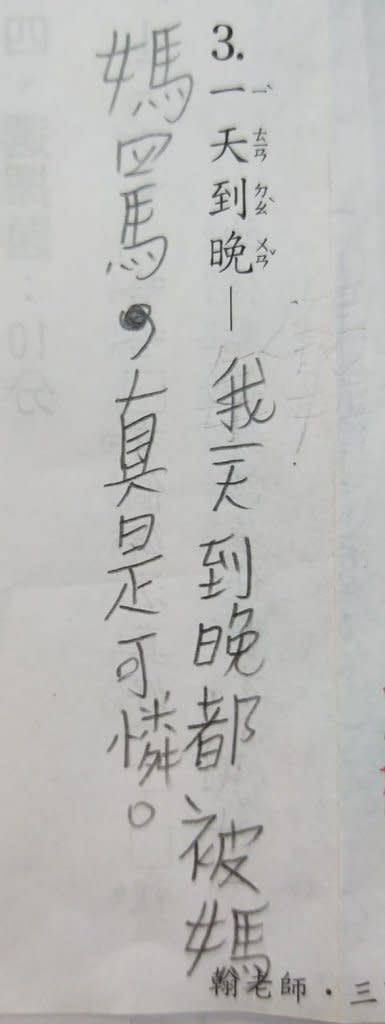 3.一天到晚—我一天到晚都被媽
媽罵,真是可憐。
翰老師.三